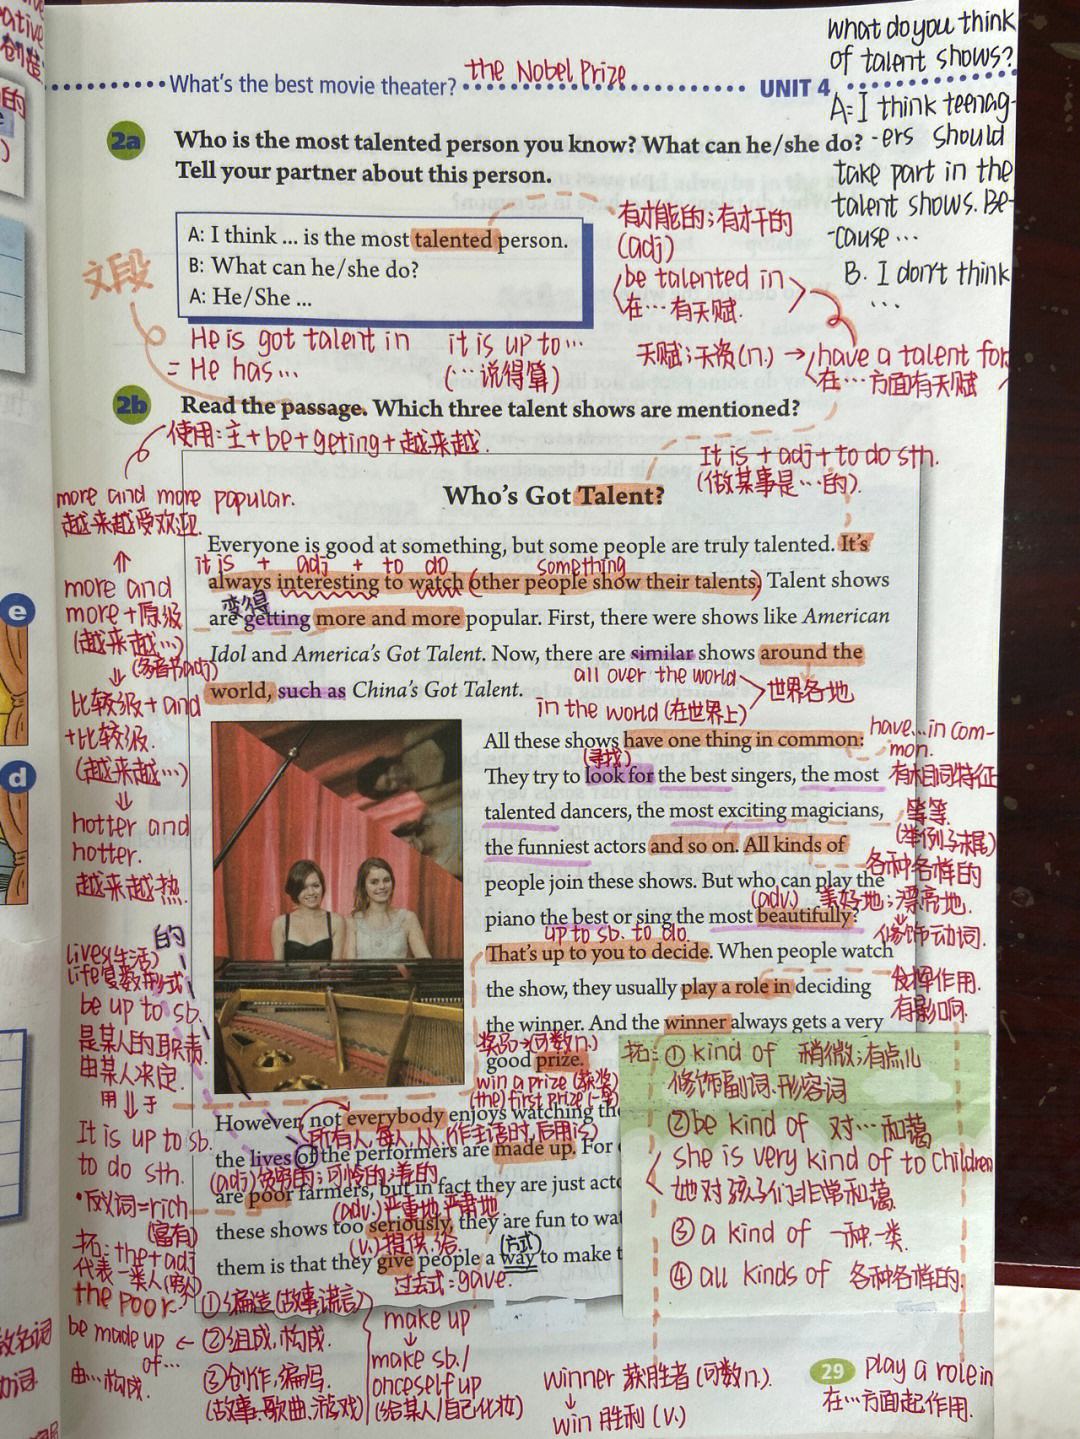 ative
创造
的
What's the best movie theater?
the Nobel Prize
UNIT 4
what do you think
of talent shows?
A: I think teenag-
-ers should
take part in the
talent shows. Be-
-cause ...
B. I don't think
...
2a
Who is the most talented person you know? What can he/she do?
Tell your partner about this person.
A: I think ... is the most talented person.
B: What can he/she do?
A: He/She ...
有才能的;有才干的
(adj)
be talented in
在…有天赋.
文段
He is got talent in
= He has ...
it is up to ...
(…说得算)
天赋;天资(n.) → have a talent for
在…方面有天赋
2b
Read the passage. Which three talent shows are mentioned?
使用:主+be+geting+越来越.
It is + adj + to do sth.
(做某事是…的).
more and more popular.
越来越受欢迎.
Who's Got Talent?
Everyone is good at something, but some people are truly talented. It's
it is + adj + to do something
always interesting to watch other people show their talents. Talent shows
变得
are getting more and more popular. First, there were shows like American
Idol and America's Got Talent. Now, there are similar shows around the
world, such as China's Got Talent.
all over the world
in the world (在世界上)
世界各地
more and
more+原级
(越来越…)
(多音节adj)
比较级+and
+比较级.
(越来越…)
hotter and
hotter.
越来越热.
All these shows have one thing in common:
have...in com-
mon.
有相同特征
(寻找)
They try to look for the best singers, the most
talented dancers, the most exciting magicians,
等等.
(举例子末尾)
the funniest actors and so on. All kinds of
各种各样的
people join these shows. But who can play the
(adv.) 美好地;漂亮地.
修饰动词.
piano the best or sing the most beautifully?
up to sb. to do.
That's up to you to decide. When people watch
the show, they usually play a role in deciding
发挥作用.
有影响.
the winner. And the winner always gets a very
奖品→(可数n.)
good prize.
win a prize (获奖)
(the) first prize (一等)
的
lives(生活)
life复数形式
be up to sb.
是某人的职责.
由某人决定.
用 于
It is up to sb.
to do sth.
反义词=rich
(富有)
拓:the+adj
代表一类人(穷人)
the poor.
However, not everybody enjoys watching the
所有人,每人,从.(作主语时,后用is)
the lives of the performers are made up. For
(adj)贫穷的;可怜的;差的
are poor farmers, but in fact they are just acto
(adv.)严重地,严肃地
these shows too seriously, they are fun to wat
(v.)提供,给
(方式)
them is that they give people a way to make t
过去式:gave.
拓:① kind of 稍微;有点儿
修饰副词.形容词
② be kind of 对…和蔼
she is very kind of to children
她对孩子们非常和蔼
③ a kind of 一种,一类.
④ all kinds of 各种各样的.
①编造(故事,谎言)
②组成,构成.
③创作,编写.
(故事、歌曲、游戏)
be made up
of...
由…构成.
make up
make sb./
onceself up
(给某人/自己化妆)
winner 获胜者(可数n.).
win 胜利(v.)
29
play a role in
在…方面起作用.
数名词
动词